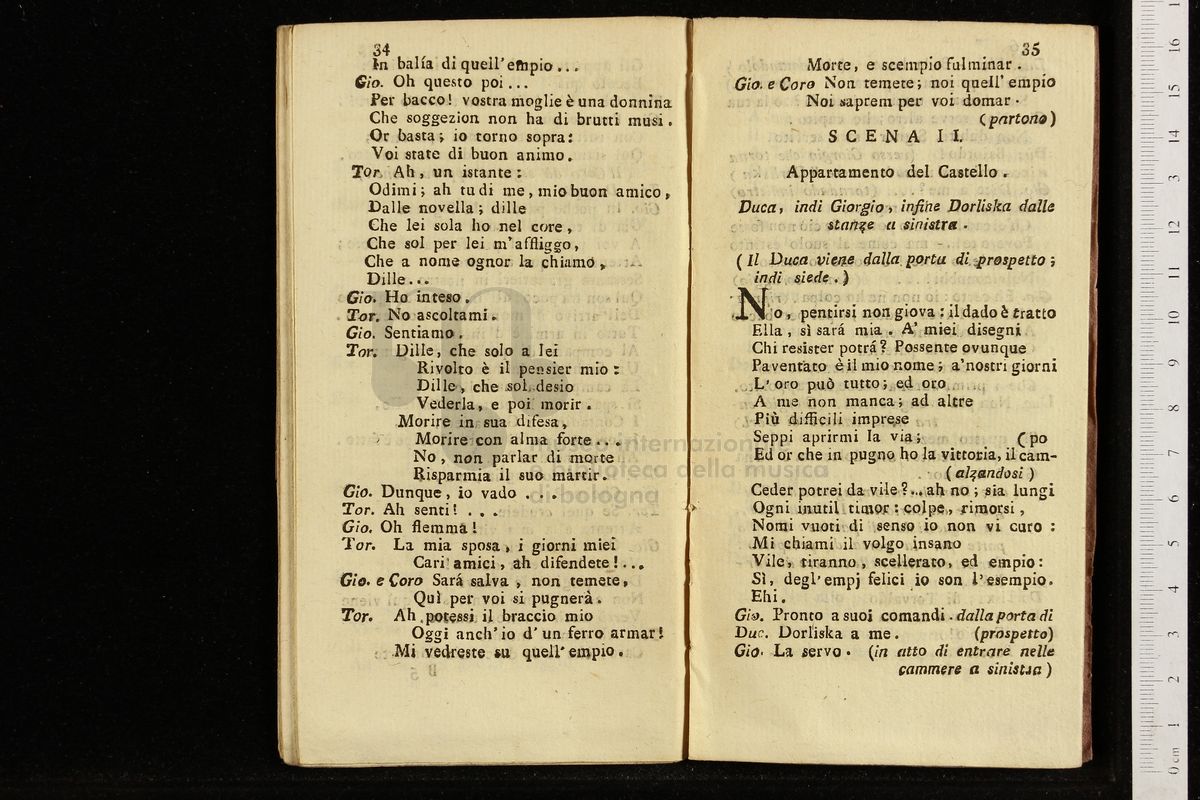 34
In balía di quell'empio...
Gio. Oh questo poi...
Per bacco! vostra moglie è una donnina
Che soggezion non ha di brutti musi.
Or basta; io torno sopra:
Voi state di buon animo.
Tor. Ah, un istante:
Odimi; ah tu di me, mio buon amico,
Dalle novella; dille
Che lei sola ho nel core,
Che sol per lei m'affliggo,
Che a nome ognor la chiamo,
Dille...
Gio. Ho inteso.
Tor. No ascoltami.
Gio. Sentiamo.
Tor. Dille, che solo a lei
Rivolto è il pensier mio:
Dille, che sol desio
Vederla, e poi morir.
Morire in sua difesa,
Morire con alma forte...
No, non parlar di morte
Risparmia il suo martir.
Gio. Dunque, io vado ...
Tor. Ah senti! ...
Gio. Oh flemma!
Tor. La mia sposa, i giorni miei
Cari amici, ah difendete!...
Gio. e Coro Sará salva, non temete,
Quì per voi si pugnerà.
Tor. Ah potessi il braccio mio
Oggi anch'io d'un ferro armar!
Mi vedreste su quell'empio.
35
Morte, e scempio fulminar.
Gio. e Coro Non temete; noi quell'empio
Noi saprem per voi domar.
(partono)
SCENA II.
Appartamento del Castello.
Duca, indi Giorgio, infine Dorliska dalle
stanze a sinistra.
(Il Duca viene dalla porta di prospetto;
indi siede.)
No, pentirsi non giova: il dado è tratto
Ella, sì sará mia. A' miei disegni
Chi resister potrá? Possente ovunque
Paventato è il mio nome; a'nostri giorni
L'oro può tutto; ed oro
A me non manca; ad altre
Più difficili imprese
Seppi aprirmi la via; (po
Ed or che in pugno ho la vittoria, il cam-
(alzandosi)
Ceder potrei da vile?... ah no; sia lungi
Ogni inutil timor: colpe, rimorsi,
Nomi vuoti di senso io non vi curo:
Mi chiami il volgo insano
Vile, tiranno, scellerato, ed empio:
Sì, degl'empj felici io son l'esempio.
Ehi.
Gio. Pronto a suoi comandi. dalla porta di
Duc. Dorliska a me. (prospetto)
Gio. La servo. (in atto di entrare nelle
cammere a sinistra)
museo internazionale
e biblioteca della musica
di bologna